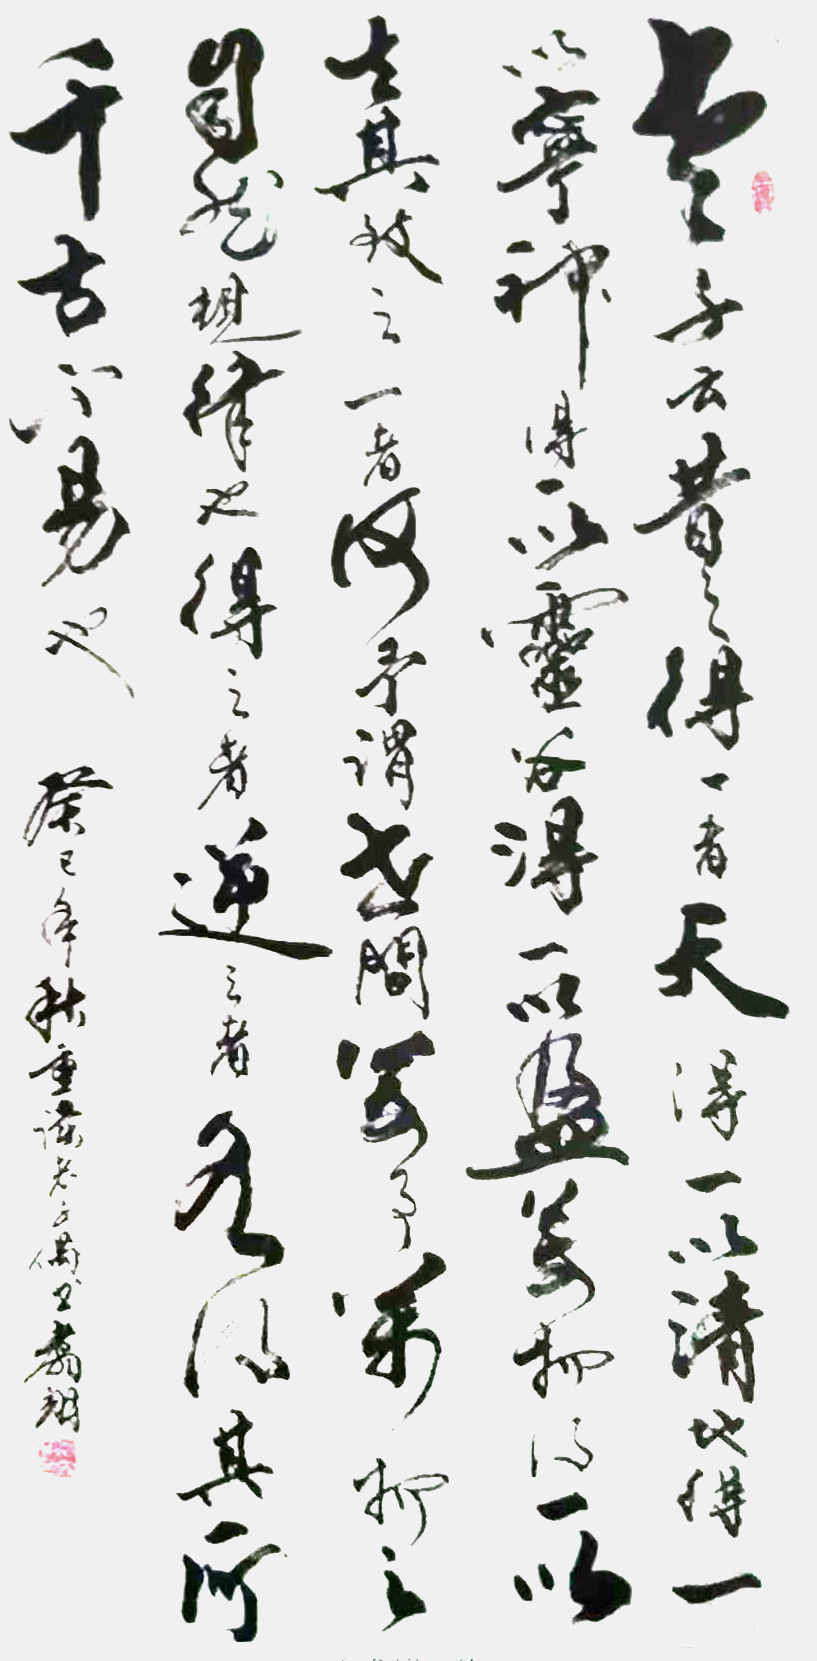 老子云昔之得一者天得一以清地得一
以寧神得一以靈谷得一以盈萬物得一以
生其致之一者何予謂世間萬事萬物之
自然規律也得之者逆之者各得其所
千古不易也 癸巳年秋重讀老子偶書